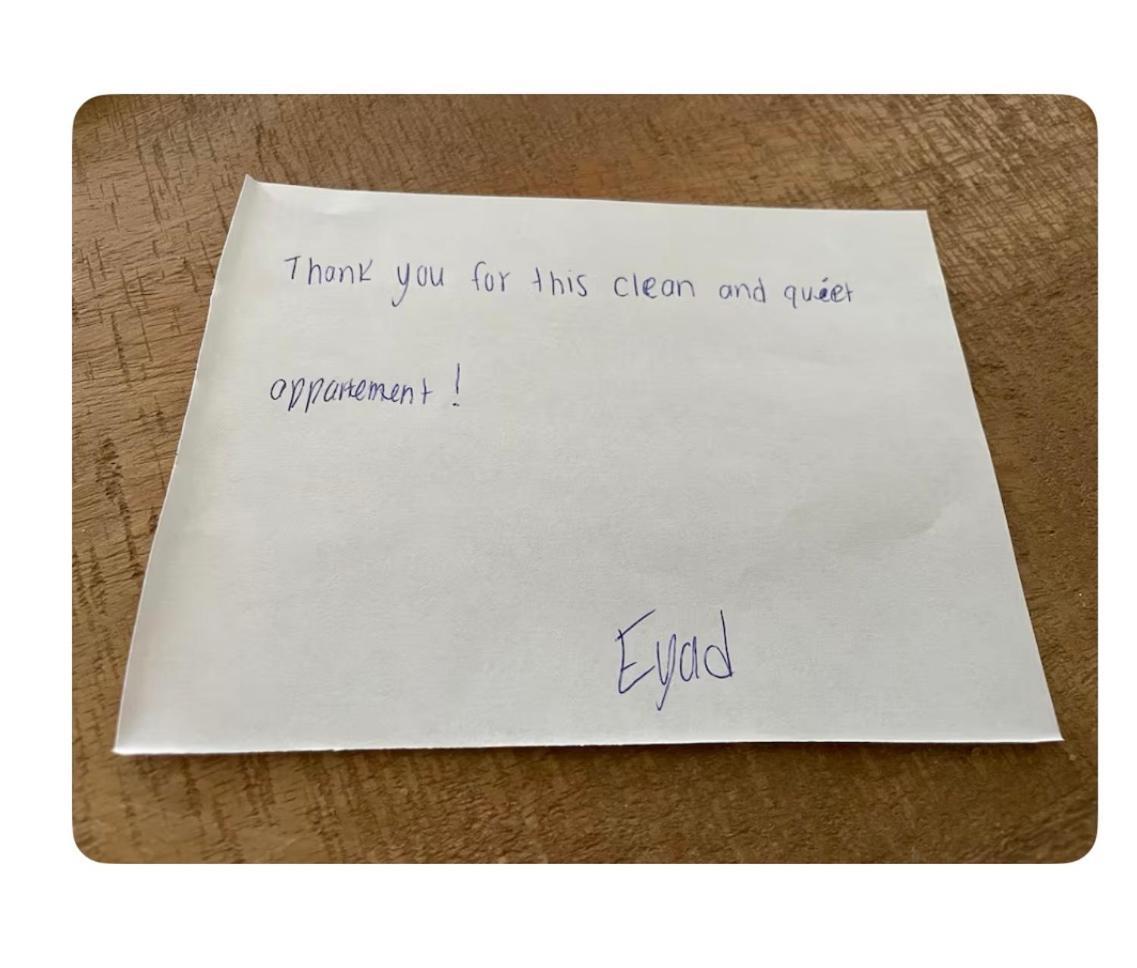 Thank you for this clean and quiet
appartement !
Eyad